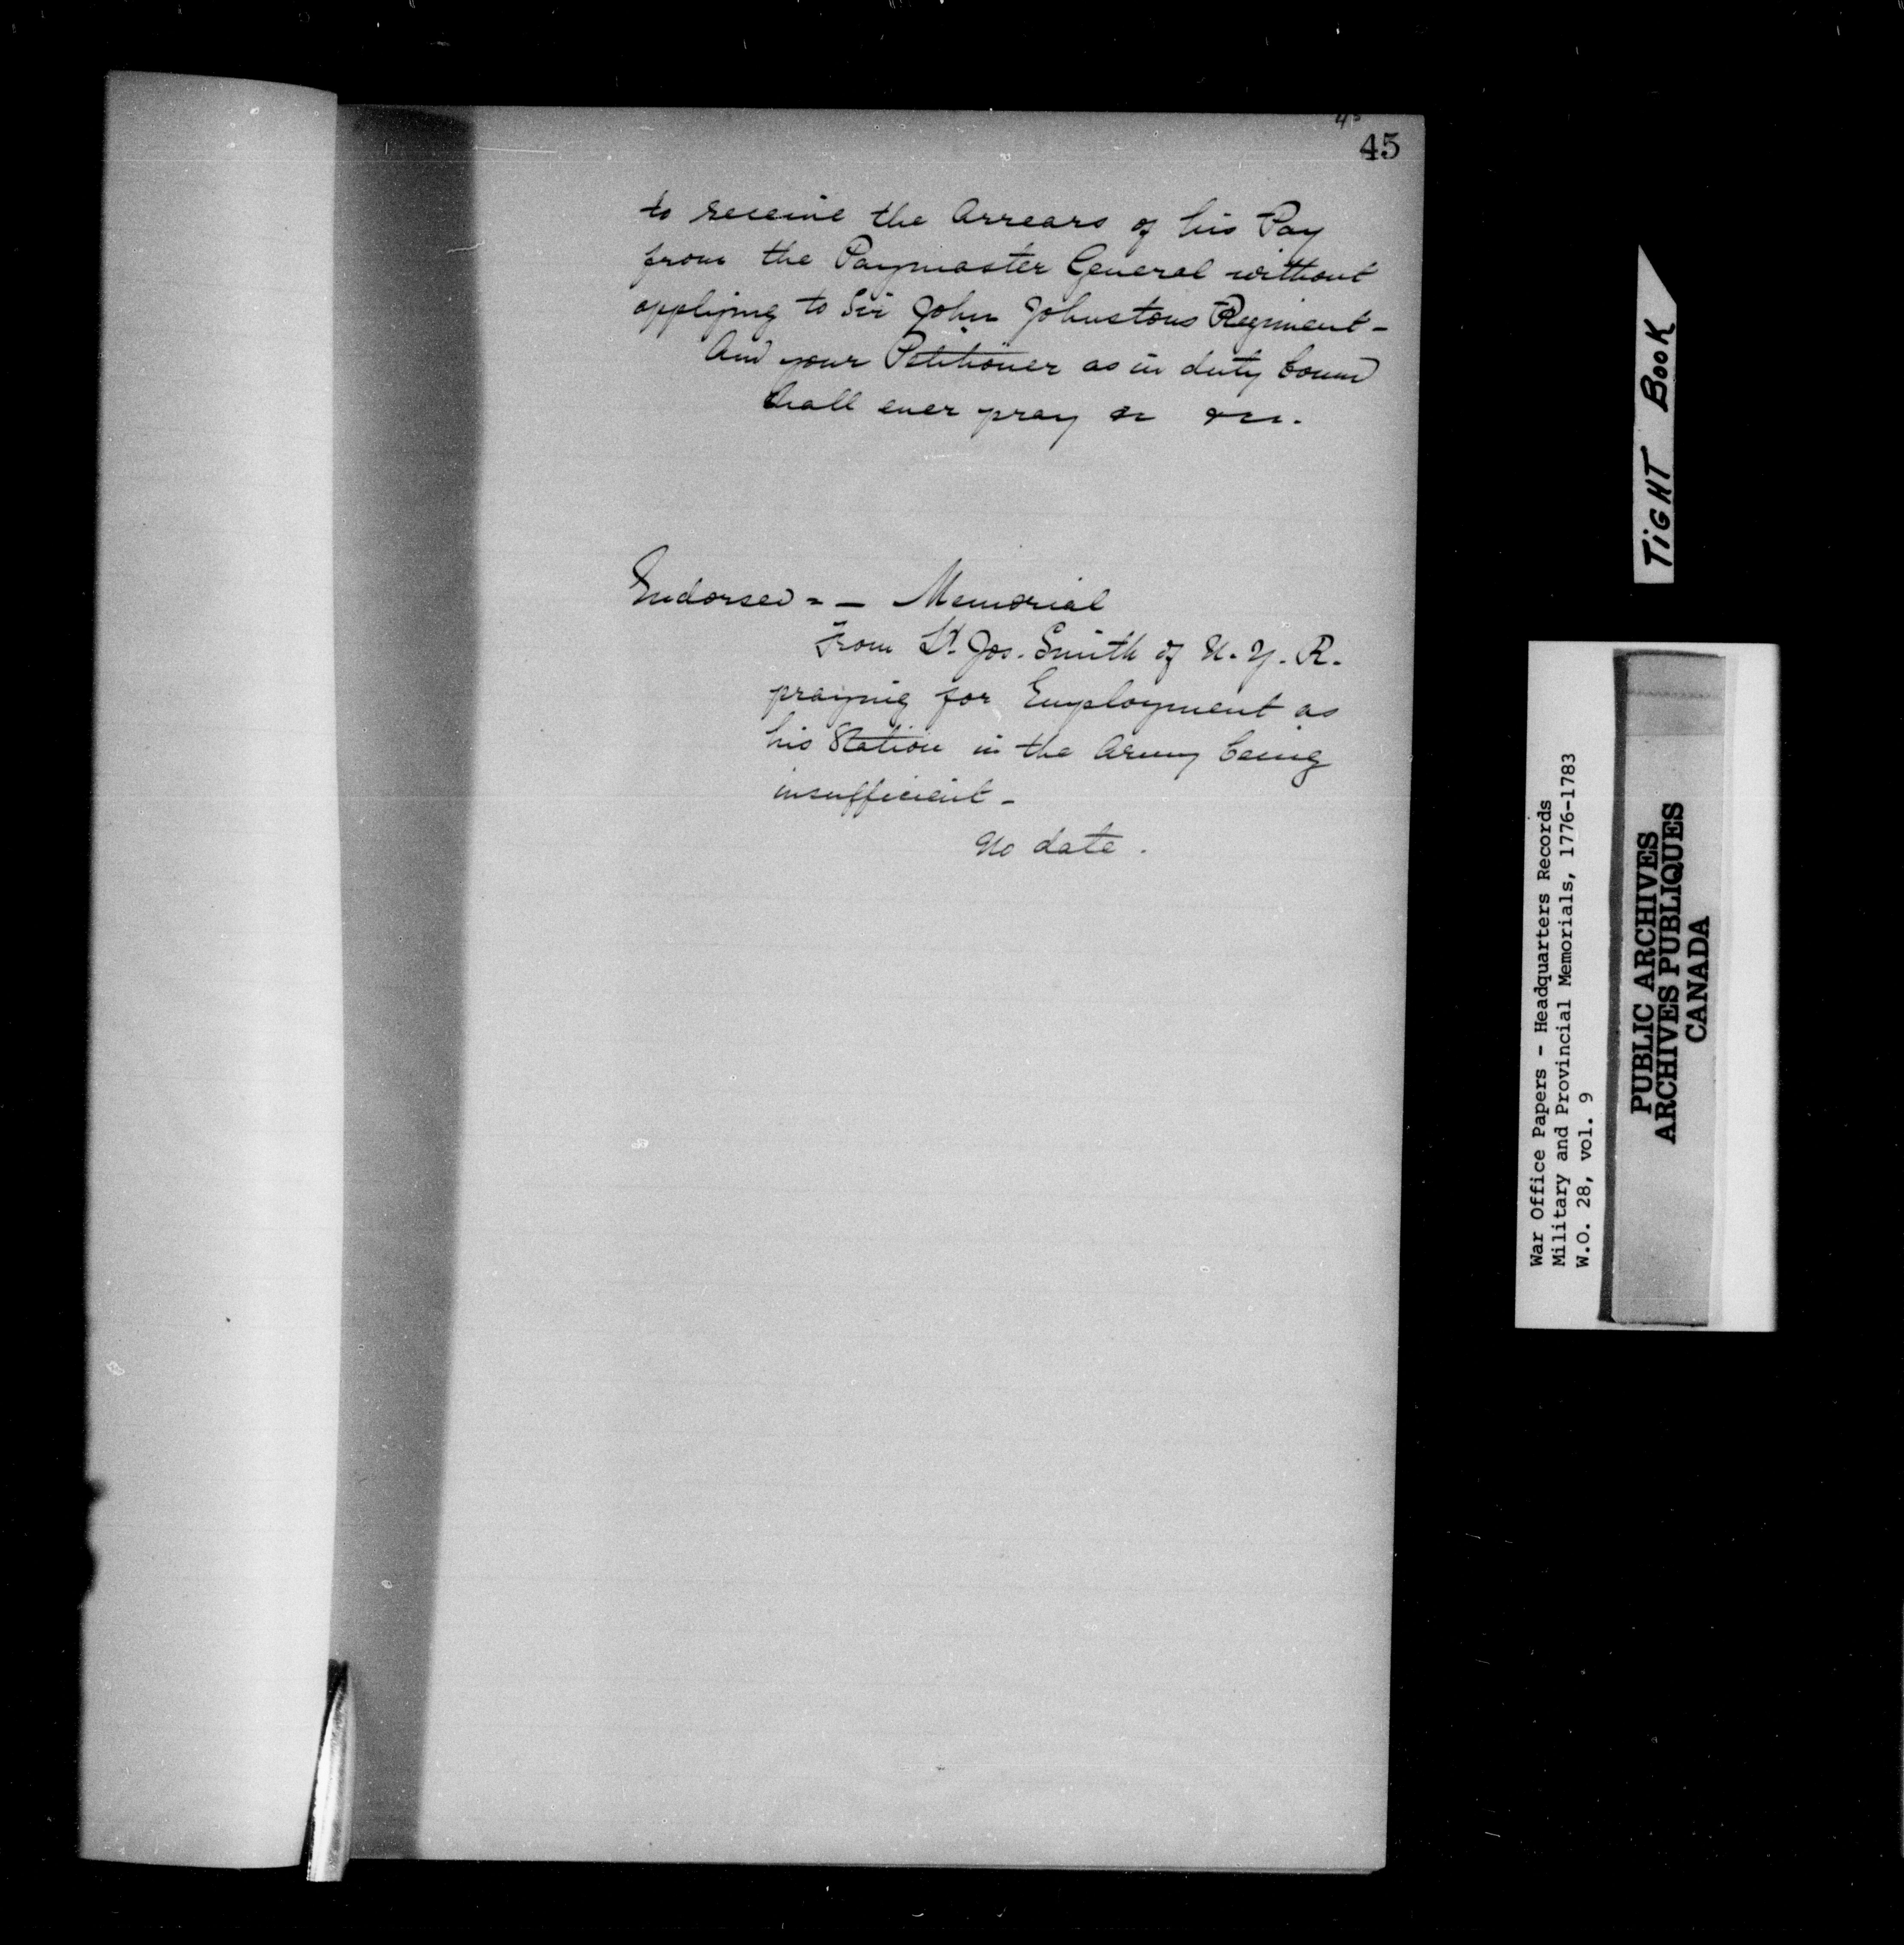 45
45
to receive the Arrears of his Pay
from the Paymaster General without
applying to Sir John Johnstons Regiment -
And your Petitioner as in duty bound
shall ever pray &c &c.
Endorsed = - Memorial
From Lt. Jos. Smith of N. Y. R.
praying for Employment as
his Station in the Army being
insufficient -
No date.
TIGHT BOOK
War Office Papers - Headquarters Records
Military and Provincial Memorials, 1776-1783
W.O. 28, vol. 9
PUBLIC ARCHIVES
ARCHIVES PUBLIQUES
CANADA